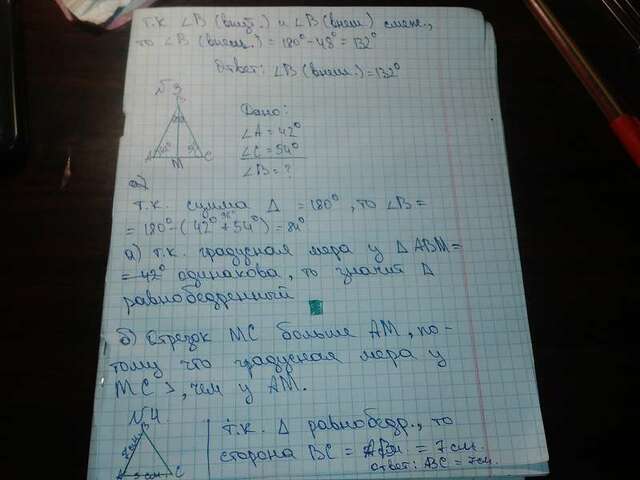 Т.к ∠B (внут.) и ∠B (внеш) смеж.,
то ∠B (внеш.) = 180° - 48° = 132°
Ответ: ∠B (внеш.) = 132°
№3
B
A
M
C
Дано:
∠A = 42°
∠C = 54°
∠B = ?
т.к. сумма Δ = 180°, то ∠B =
= 180° - (42° + 54°) = 84°
а) т.к. градусная мера у Δ ABM =
= 42° одинакова, то значит Δ
равнобедренный
б) Отрезок MC больше AM, по-
тому что градусная мера у
MC >, чем у AM.
№4.
B
7см
5 см
C
т.к. Δ равнобедр., то
сторона BC = = 7см.
Ответ: BC = 7см.